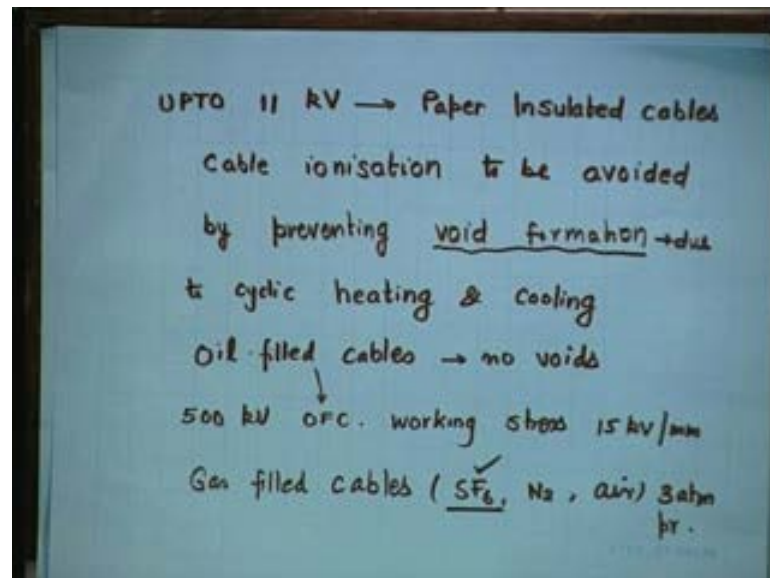 UPTO 11 kV → Paper Insulated cables
Cable ionisation to be avoided
by preventing void formation → due
to cyclic heating & cooling
Oil filled cables → no voids
500 kV OFC. working stress 15 kV/mm
Gas filled cables (SF6, N2, air) 3 atm
pr.